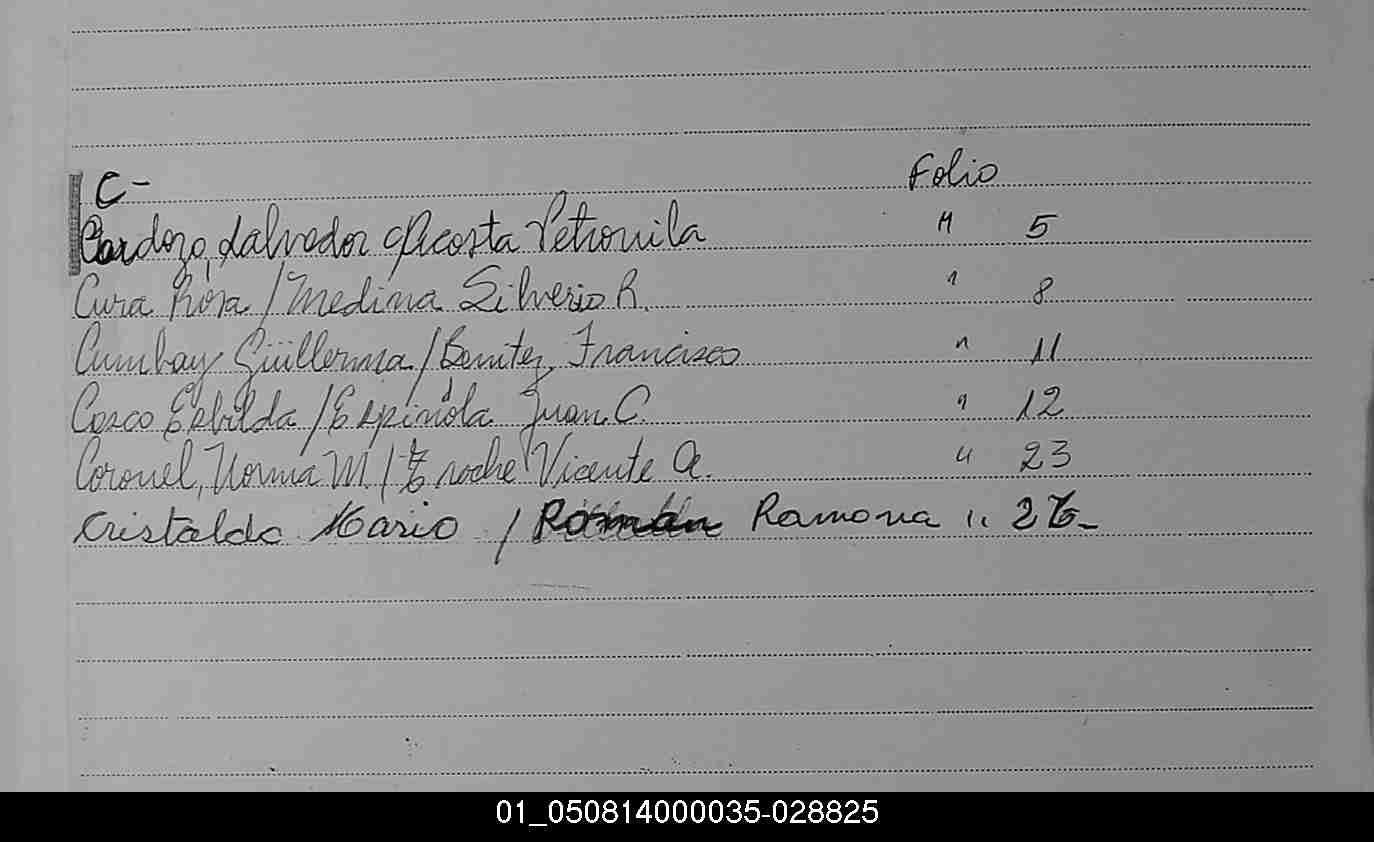 C- Folio
Cardozo, Salvador c/ Acosta Petronila " 5
Cura Rosa / Medina Silverio R. " 8
Cumbay Güillerma / Benitez, Francisco " 11
Cosco Esbilda / Espinóla Juan C. " 12
Coronel, Norma M / Enoche Vicente A. " 23
Cristaldo Mario / Román Ramona " 26-
01_050814000035-028825